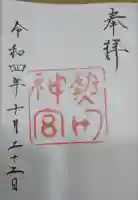 奉拝
熱田
神宮
令和四年十月二十五日